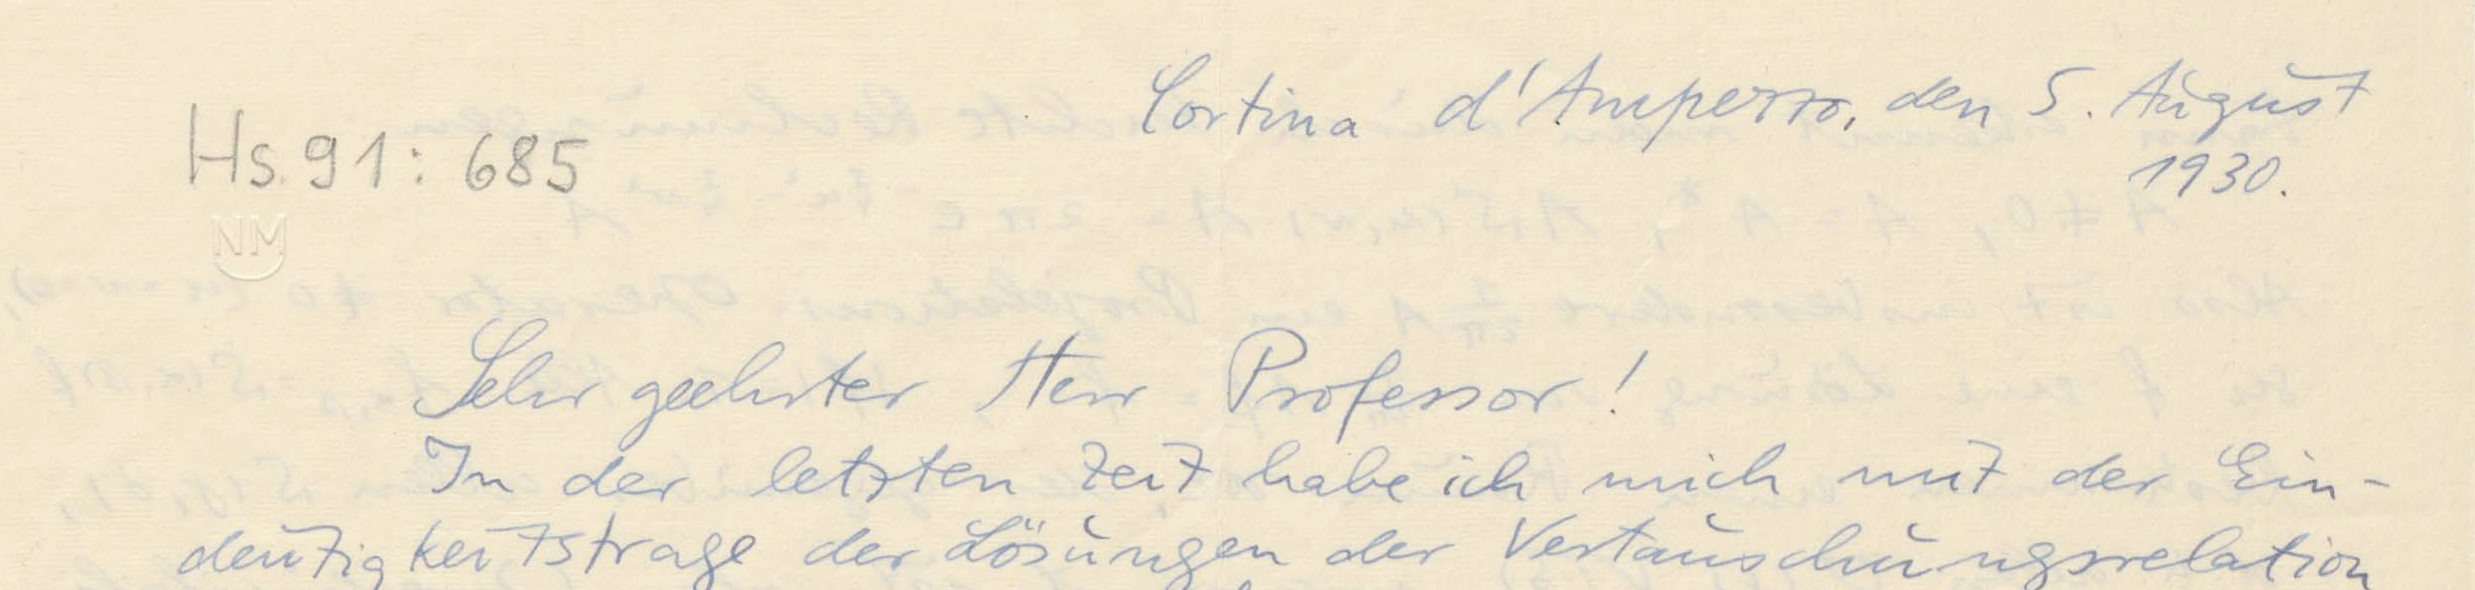 Cortina d'Amperro, den 5. August
1930.
Hs. 91: 685
NM
Sehr geehrter Herr Professor!
In der letzten Zeit habe ich mich mit der Ein-
deutigkeitsfrage der Lösungen der Vertauschungsrelation